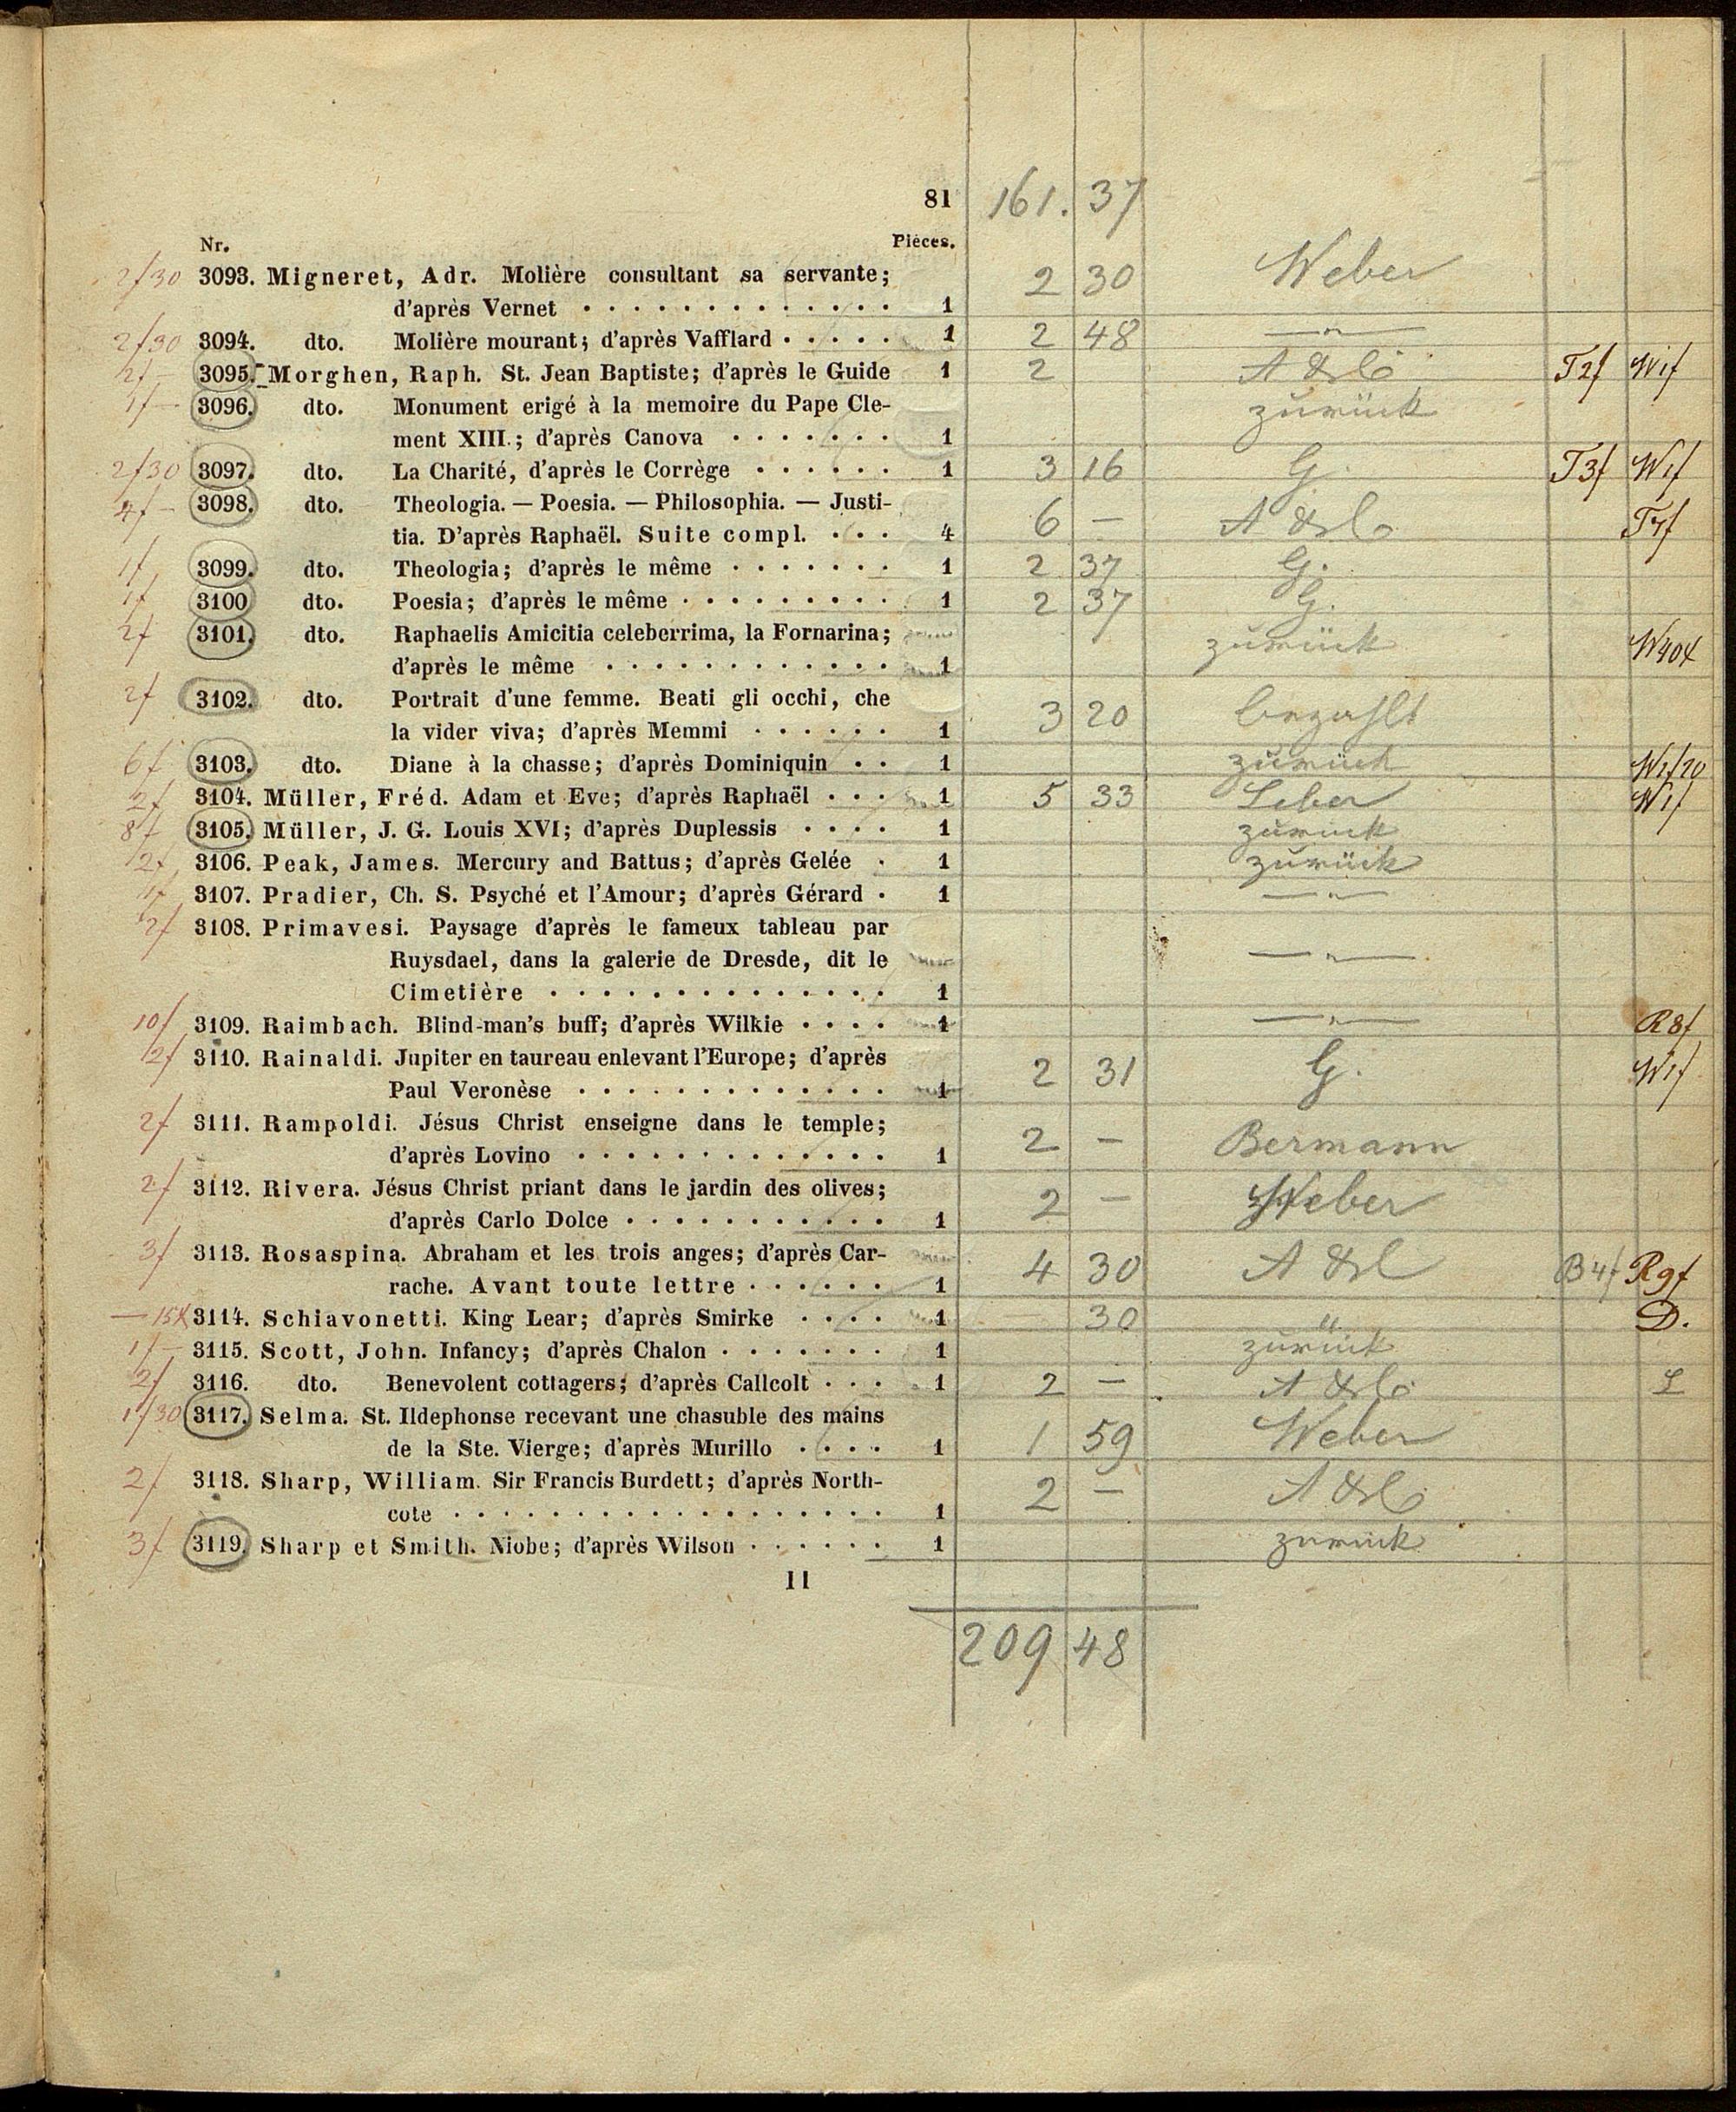 81 161. 37
Nr. Pièces.
2f30 3093. Migneret, Adr. Molière consultant sa servante;
d'après Vernet . . . . . . . . . . . . . 1 2 30 Weber
2f30 3094. dto. Molière mourant; d'après Vafflard . . . . . 1 2 48 — " —
2f — 3095. Morghen, Raph. St. Jean Baptiste; d'après le Guide 1 2 T2f W1f
1f — 3096. dto. Monument erigé à la memoire du Pape Cle-
ment XIII.; d'après Canova . . . . . . . 1 zurück
2f30 3097. dto. La Charité, d'après le Corrège . . . . . . 1 3 16 G. T3f W1f
4f — 3098. dto. Theologia. — Poesia. — Philosophia. — Justi-
tia. D'après Raphaël. Suite compl. . . . 4 6 —
1f 3099. dto. Theologia; d'après le même . . . . . . . 1 2 37 G.
1f 3100 dto. Poesia; d'après le même . . . . . . . . . 1 2 37 G.
2f 3101. dto. Raphaelis Amicitia celeberrima, la Fornarina;
d'après le même . . . . . . . . . . . . 1 zurück
2f 3102. dto. Portrait d'une femme. Beati gli occhi, che
la vider viva; d'après Memmi . . . . . . 1 3 20 bezahlt
6f 3103. dto. Diane à la chasse; d'après Dominiquin . . 1 zurück
2f 3104. Müller, Fréd. Adam et Eve; d'après Raphaël . . . 1 5 33 W1f
8f 3105. Müller, J. G. Louis XVI; d'après Duplessis . . . . 1 zurück
2f 3106. Peak, James. Mercury and Battus; d'après Gelée . 1 zurück
1f 3107. Pradier, Ch. S. Psyché et l'Amour; d'après Gérard . 1 — " —
2f 3108. Primavesi. Paysage d'après le fameux tableau par
Ruysdael, dans la galerie de Dresde, dit le
Cimetière . . . . . . . . . . . . . . 1 — " —
10f 3109. Raimbach. Blind-man's buff; d'après Wilkie . . . . 1 — " — R8f
2f 3110. Rainaldi. Jupiter en taureau enlevant l'Europe; d'après
Paul Veronèse . . . . . . . . . . . . . 1 2 31 G. W1f
2f 3111. Rampoldi. Jésus Christ enseigne dans le temple;
d'après Lovino . . . . . . . . . . . . . 1 2 — Bermann
2f 3112. Rivera. Jésus Christ priant dans le jardin des olives;
d'après Carlo Dolce . . . . . . . . . . . 1 2 — Weber
3f 3113. Rosaspina. Abraham et les trois anges; d'après Car-
rache. Avant toute lettre . . . . . . 1 4 30 B4f R9f
— 15x 3114. Schiavonetti. King Lear; d'après Smirke . . . . 1 30 " D.
1f — 3115. Scott, John. Infancy; d'après Chalon . . . . . . . 1 zurück
2f 3116. dto. Benevolent cottagers; d'après Callcolt . . . 1 2 —
1f30 3117. Selma. St. Ildephonse recevant une chasuble des mains
de la Ste. Vierge; d'après Murillo . . . . 1 1 59 Weber
2f 3118. Sharp, William. Sir Francis Burdett; d'après North-
cote . . . . . . . . . . . . . . . . . . 1 2 —
3f 3119. Sharp et Smith. Niobe; d'après Wilson . . . . . . 1 zurück
11
209 48